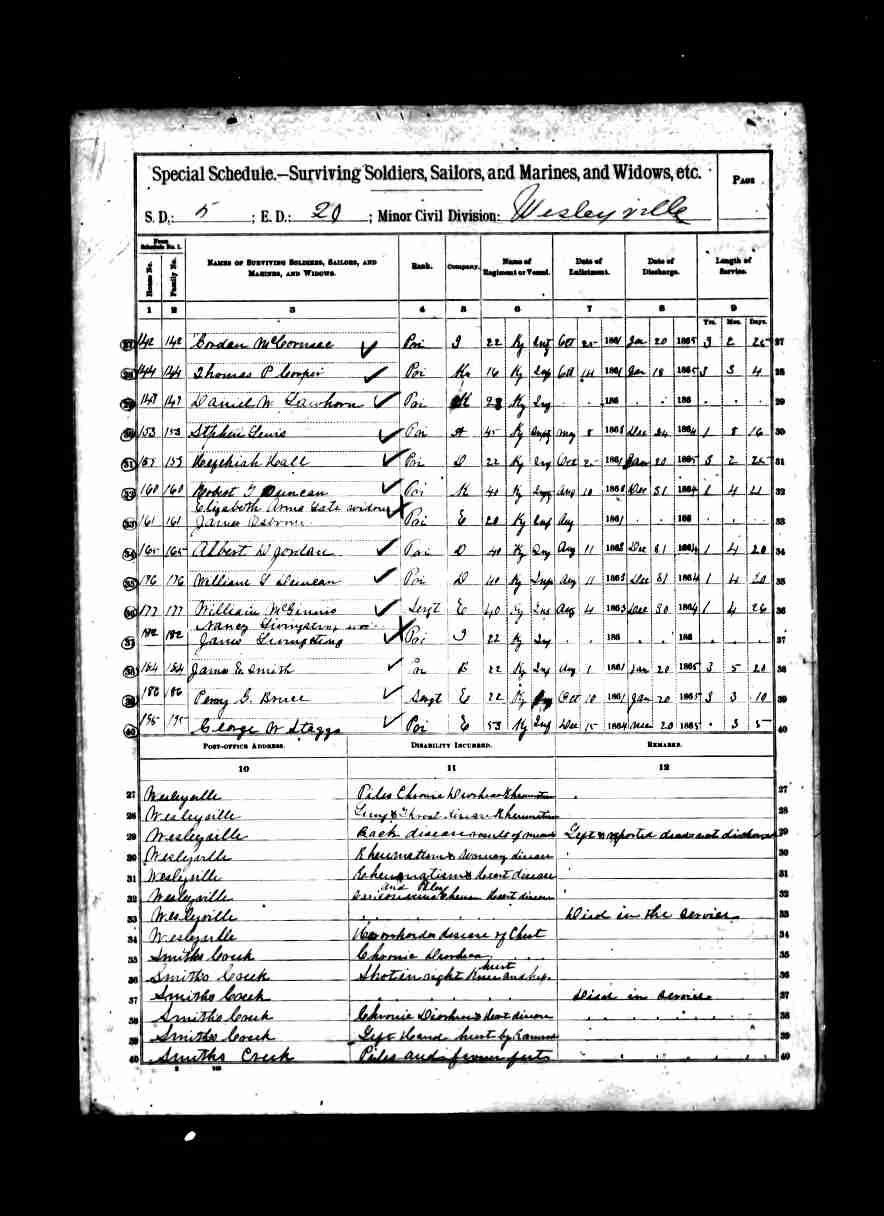 Special Schedule.—Surviving Soldiers, Sailors, and Marines, and Widows, etc.
PAGE
S. D.: 5 ; E. D.: 20 ; Minor Civil Division: Wesleyville
From Schedule No. 1.
House No. Family No. NAMES OF SURVIVING SOLDIERS, SAILORS, AND MARINES, AND WIDOWS. Rank. Company. Name of Regiment or Vessel. Date of Enlistment. Date of Discharge. Length of Service.
1 2 3 4 5 6 7 8 9
Yrs. Mos. Days.
27 142 142 Pri I 22 Ky Inf Oct 25 1861 Jan 20 1865 3 2 25 27
28 144 144 Thomas P Cooper Pri K 16 Ky Inf Oct 14 1861 Jan 18 1865 3 3 4 28
29 Daniel W Lawhorn Pri Ky Inf 186 186 29
30 153 153 Stephen Lewis Pri A 45 Ky May 8 1863 Dec 24 1864 1 8 16 30
31 Hezekiah Hall Pri D 22 Ky Inf Oct 25 1861 Jan 20 1865 3 2 25 31
32 160 160 Robert T Duncan Pri K 40 Ky Aug 10 1863 Dec 31 1864 1 4 21 32
Elizabeth widow
33 161 161 James Osborn Pri E 20 Ky Inf Aug 1861 186 33
34 165 165 Albert D Jordan Pri D 40 Ky Inf Aug 11 1863 Dec 31 1864 1 4 20 34
35 176 176 William Duncan Pri D 40 Ky Inf Aug 11 1863 Dec 31 1864 1 4 20 35
36 177 177 William McGinnis Sergt E 40 Ky Inf Aug 4 1863 Dec 30 1864 1 4 26 36
Nancy Livingston
37 182 182 James Pri I 22 Ky Inf 186 186 37
38 184 184 James E Smith Pri B 22 Ky Inf Aug 1 1861 Jan 20 1865 3 5 20 38
39 186 186 Perry G. Bruce Sergt E 22 Ky Inf Oct 10 1861 Jan 20 1865 3 3 10 39
40 195 195 George W Staggs Pri E 53 Ky Inf Dec 15 1864 20 1865 3 5 40
POST-OFFICE ADDRESS. DISABILITY INCURRED. REMARKS.
10 11 12
27 Wesleyville Piles Chronic Diorhea 27
28 Wesleyville 28
29 Wesleyville Back disease result of 29
30 Wesleyville Rheumatism disease 30
31 Wesleyville Rheumatism heart disease 31
32 Wesleyville and heart disease 32
33 Wesleyville Died in the service 33
34 Wesleyville disease of Chest 34
35 Smiths Creek Chronic Diorhea 35
36 Smiths Creek Shot in right Knee and hurt 36
37 Smiths Creek Died in service 37
38 Smiths Creek Chronic Diorhea & heart disease 38
39 Smiths Creek Left Hand hurt by 39
40 Smiths Creek Piles and 40